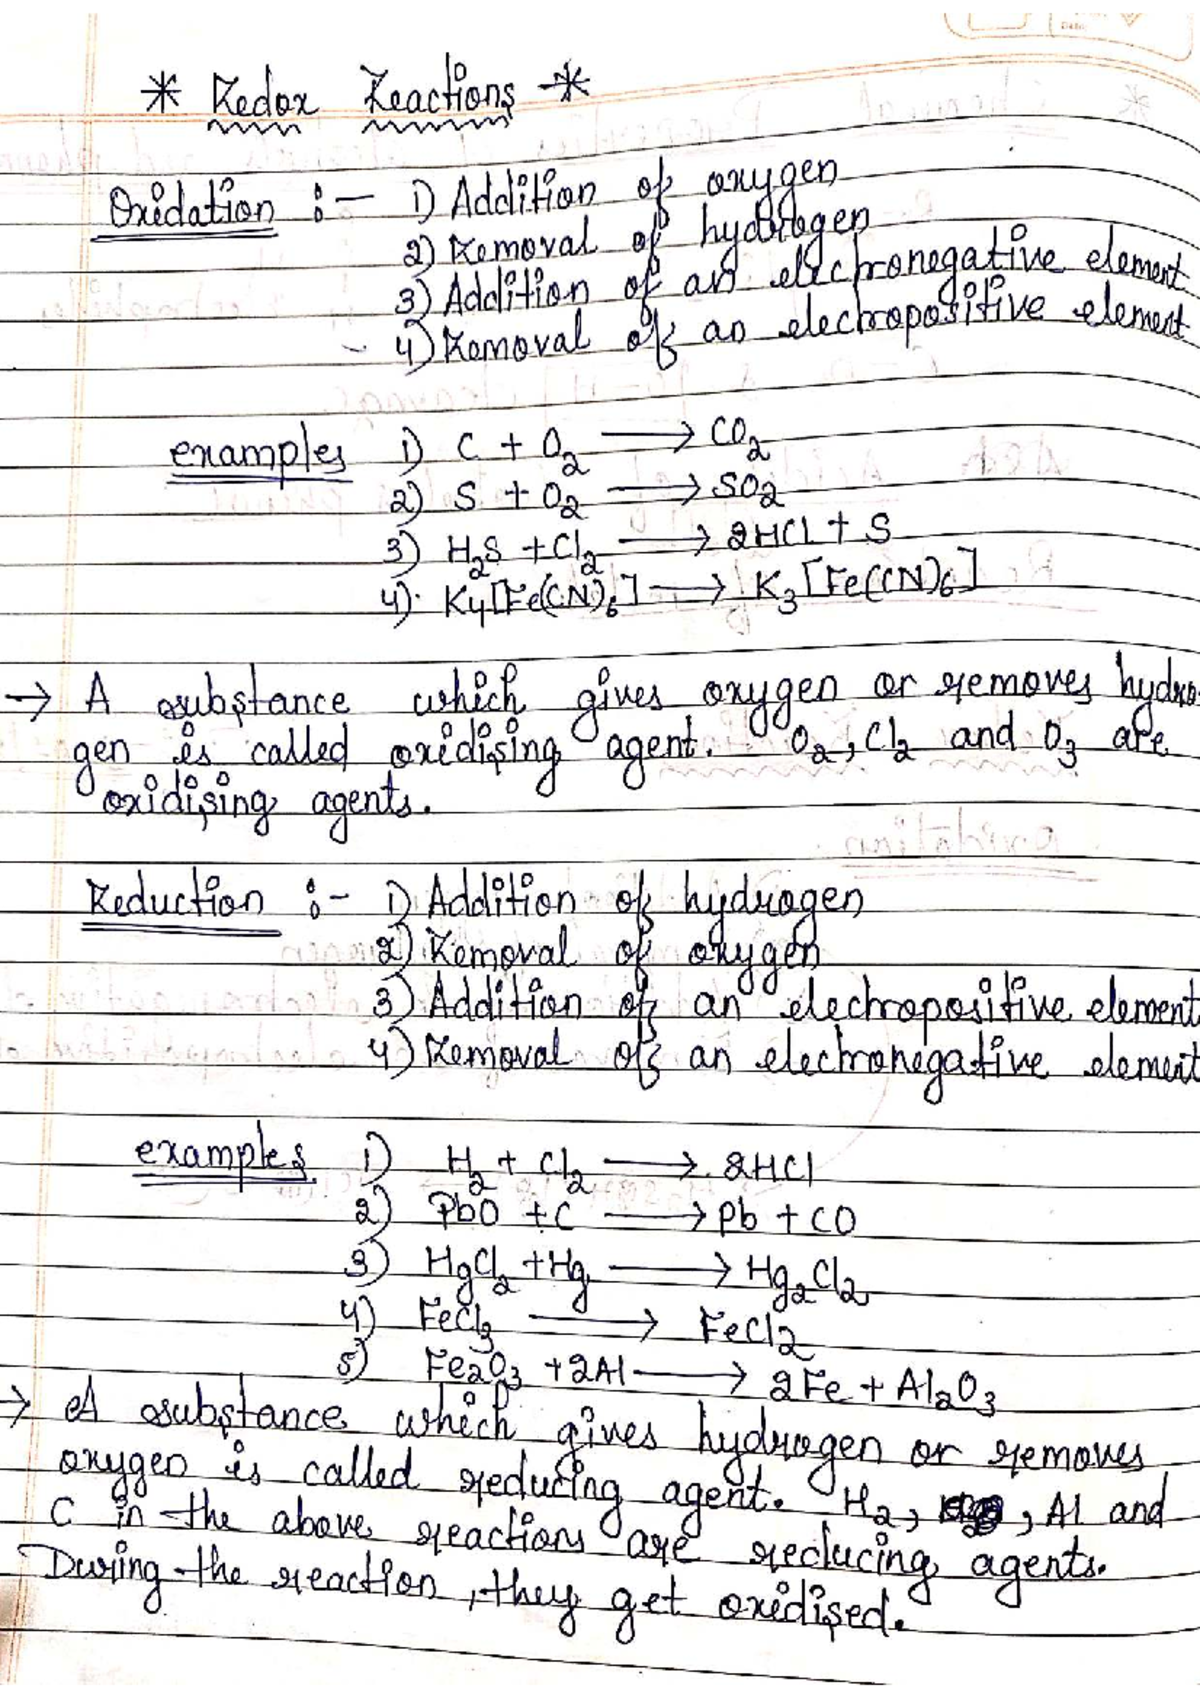 * Redox Reactions *
Oxidation :- 1) Addition of oxygen
2) Removal of hydrogen
3) Addition of an electronegative element
4) Removal of an electropositive element
examples 1) C + O₂ ⟶ CO₂
2) S + O₂ ⟶ SO₂
3) H₂S + Cl₂ ⟶ 2HCl + S
4) K₄[Fe(CN)₆] ⟶ K₃[Fe(CN)₆]
→ A substance which gives oxygen or removes hydro-
gen is called oxidising agent. O₂, Cl₂ and O₃ are
oxidising agents.
Reduction :- 1) Addition of hydrogen
2) Removal of oxygen
3) Addition of an electropositive element
4) Removal of an electronegative element
examples 1) H₂ + Cl₂ ⟶ 2HCl
2) PbO + C ⟶ Pb + CO
3) HgCl₂ + Hg ⟶ Hg₂Cl₂
4) FeCl₃ ⟶ FeCl₂
5) Fe₂O₃ + 2Al ⟶ 2Fe + Al₂O₃
→ A substance which gives hydrogen or removes
oxygen is called reducing agent. H₂, , Al and
C in the above reactions are reducing agents.
During the reaction, they get oxidised.